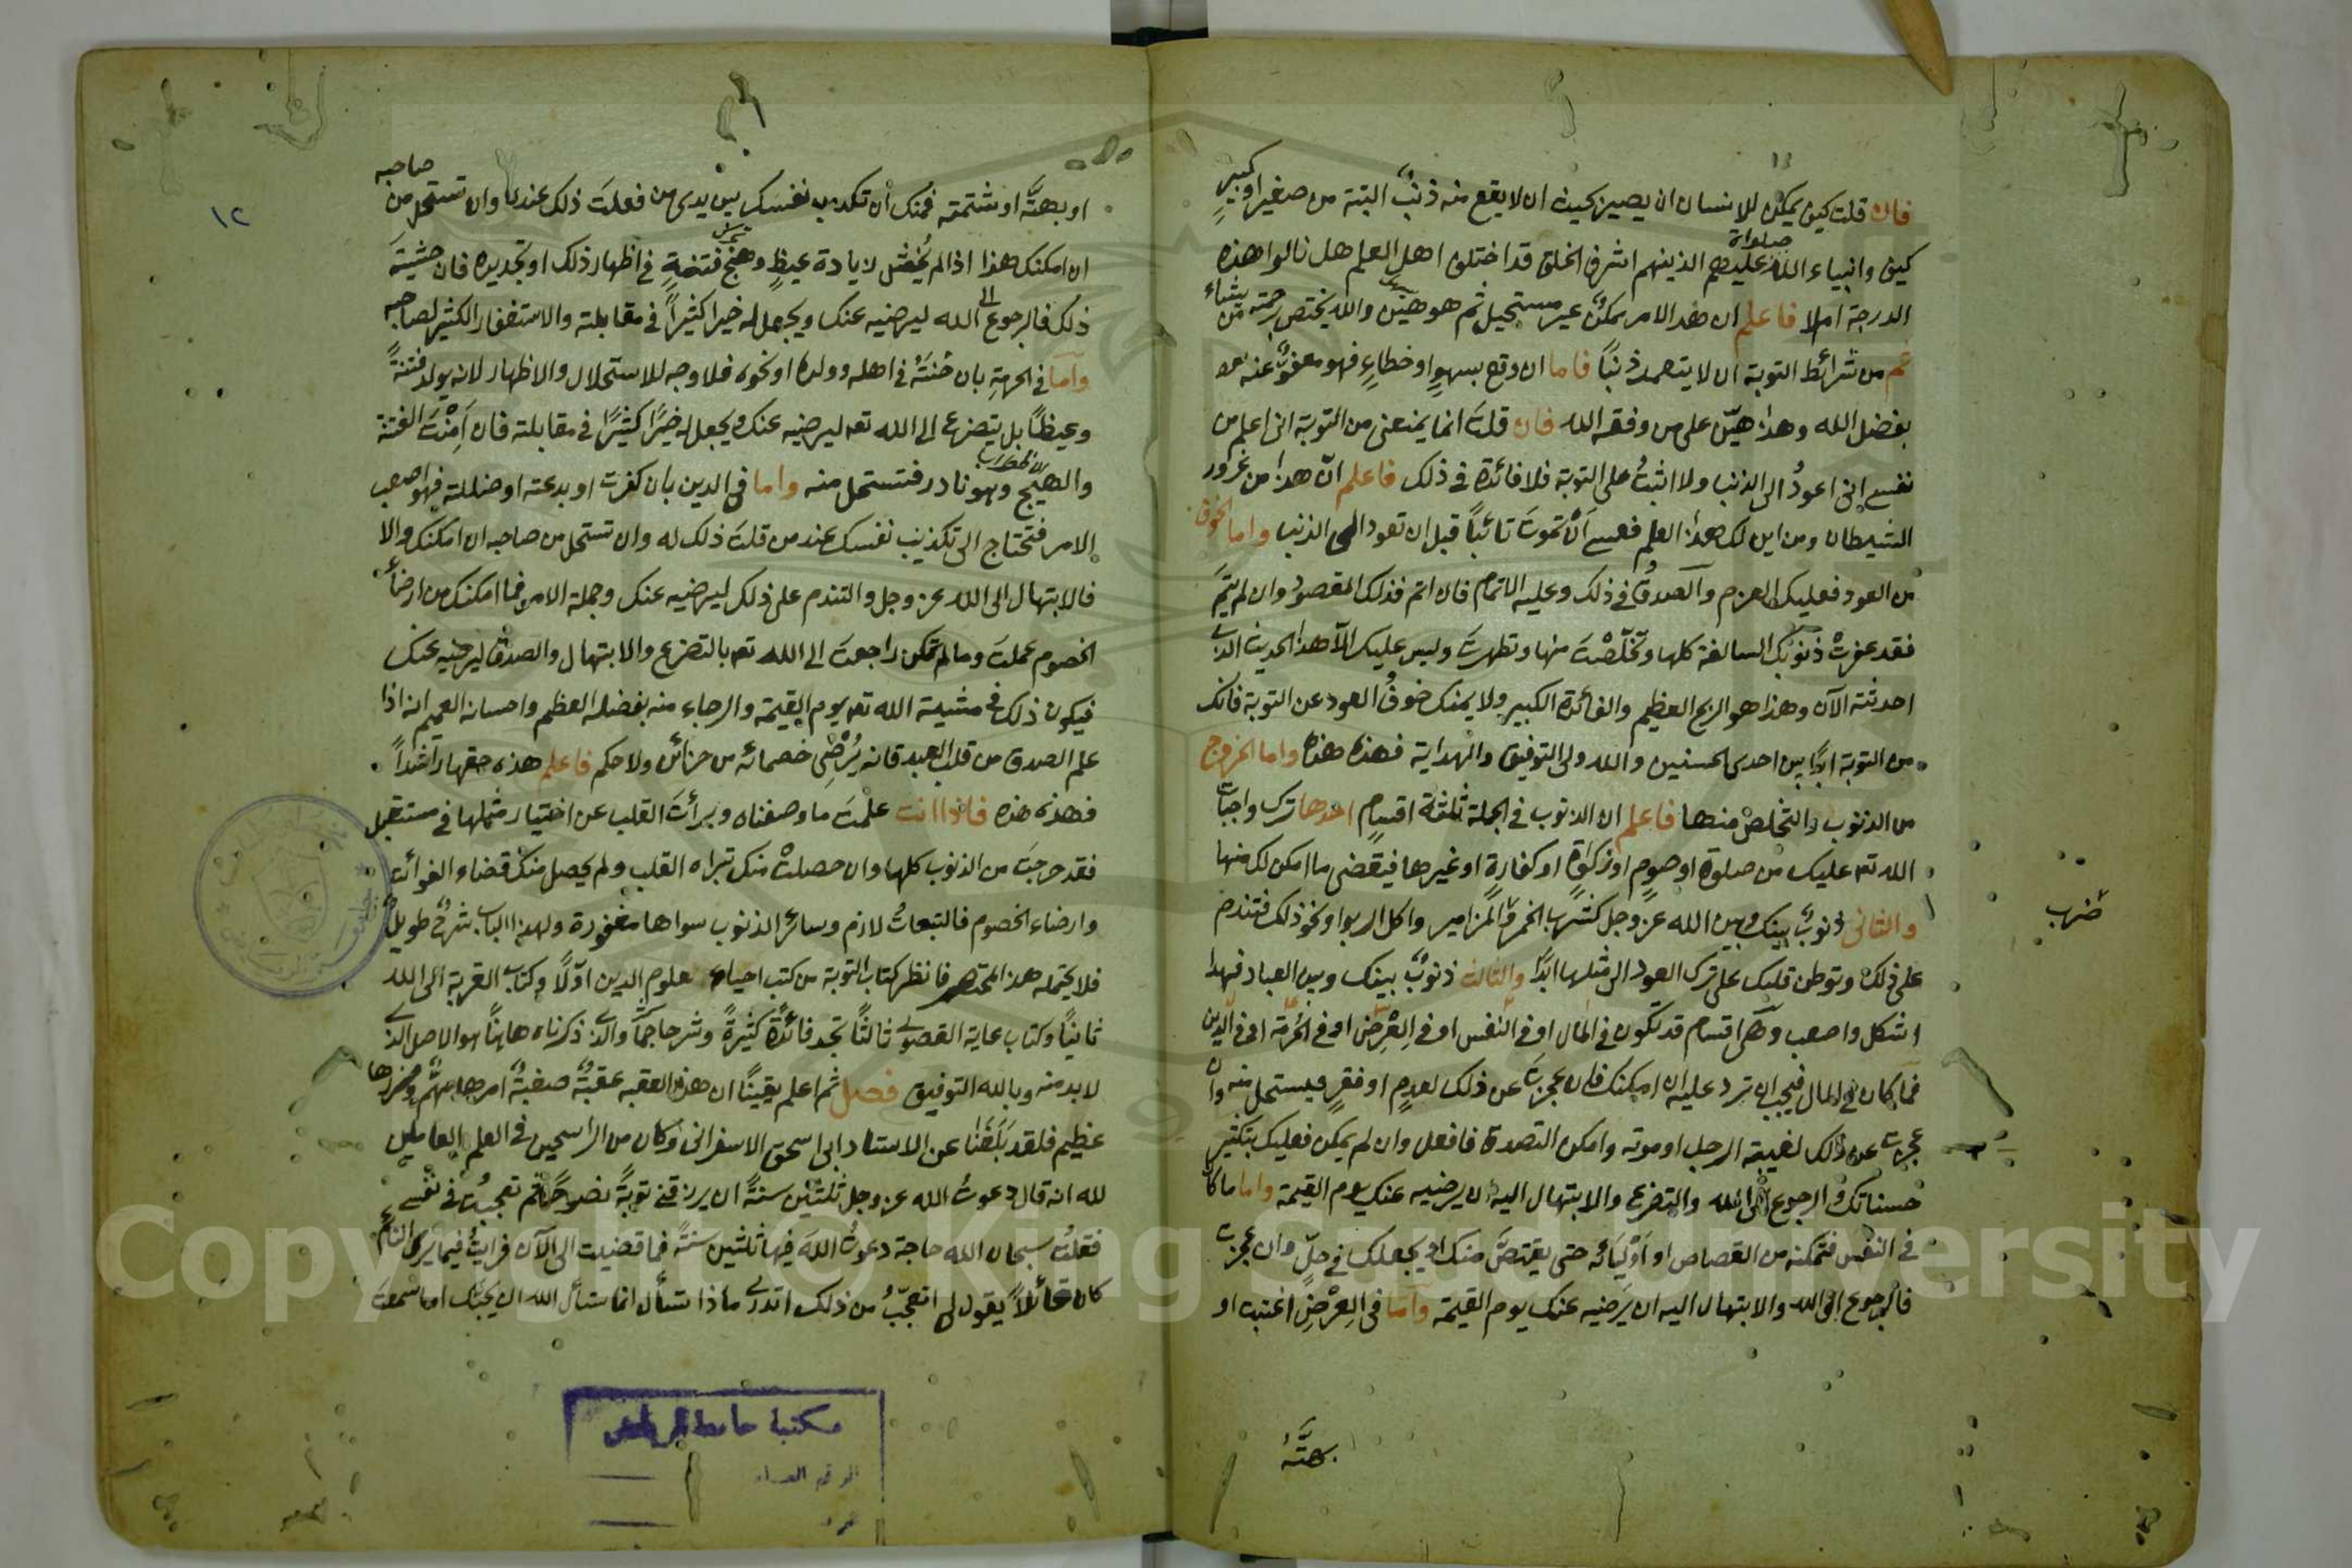 فان قلت كيف يمكن للانسان ان يصير بحيث ان لا يقع منه ذنب البتة من صغير او كبير
كيف وانبياء الله صلوات عليهم الذين هم اشرف الخلق قد اختلف اهل العلم هل نالوا هذه
الدرجة ام لا فاعلم ان هذا الامر ممكن غير مستحيل ثم هو هين والله يختص برحمته من يشاء
ثم من شرائط التوبة ان لا يتعمد ذنبا فاما ان وقع بسهو او خطاء فهو معفو عنه
بفضل الله وهذا هين على من وفقه الله فان قلت انما يمنعنى من التوبة انى اعلم من
نفسى انى اعود الى الذنب ولا اثبت على التوبة فلا فائدة فى ذلك فاعلم ان هذا من غرور
الشيطان ومن اين لك هذا العلم فعسى ان تموت تائبا قبل ان تعود الى الذنب واما الخوف
من العود فعليك العزم والصدق فى ذلك وعليه الاتمام فان اتم فذلك المقصود وان لم يتم
فقد غفرت ذنوبك السالفة كلها وتخلصت منها وتطهرت وليس عليك الا هذا الحديث الذى
احدثته الآن وهذا هو الربح العظيم والفائدة الكبير ولا يمنك خوف العود عن التوبة فانك
من التوبة ابدا بين احدى الحسنيين والله ولى التوفيق والهداية فهذه هذه واما الخروج
من الذنوب والتخلص منها فاعلم ان الذنوب فى الجملة ثلثة اقسام احدها ترك واجبات
الله تع عليك من صلوة او صوم او زكوة او كفارة او غيرها فيقضى ما امكن لك منها
والثانى ذنوب بينك وبين الله عز وجل كشرب الخمر والمزامير واكل الربوا ونحو ذلك فتندم
ضرب
على ذلك وتوطن قلبك على ترك العود الى مثلها ابدا والثالث ذنوب بينك وبين العباد فهذا
اشكل واصعب وهى اقسام قد تكون فى المال او فى النفس او فى العرض او فى الحرمة او فى الدين
فما كان فى المال فيجب ان ترد عليه ان امكنك فان عجزت عن ذلك لعدم او فقر فيستحل منه وان
عجزت عن ذلك لغيبة الرجل او موته وامكن التصدق فافعل وان لم يمكن فعليك بتكثير
حسناتك والرجوع الى الله والتضرع والابتهال اليه ان يرضيه عنك يوم القيمة واما ما كان
فى النفس فتمكنه من القصاص او اوليائه حتى يقتص منك او يجعلك فى حل وان عجزت
فالرجوع الى الله والابتهال اليه ان يرضيه عنك يوم القيمة واما فى العرض اغتبت او
بهتّه
١٢
او بهته او شتمته فمنك ان تكذب نفسك بين يدى من فعلت ذلك عنده وان تستحل من صاحبه
ان امكنك هذا اذا لم تخش زيادة غيظ وهيج فتنة فى اظهار ذلك او تجديده فان خشيت
ذلك فالرجوع الى الله ليرضيه عنك ويجعل له خيرا كثيرا فى مقابلته والاستغفار الكثير لصاحبه
واما فى الحرمة بان خنته فى اهله وولده او نحوه فلا وجه للاستحلال والاظهار لانه يولد فتنة
وغيظا بل يتضرع الى الله تع ليرضيه عنك ويجعل له خيرا كثيرا فى مقابلته فان امنت الفتنة
والهيج وهو نادر فتستحل منه واما فى الدين بان كفرت او بدعته او ضللته فهو اصعب
الامر فتحتاج الى تكذيب نفسك عند من قلت ذلك له وان تستحل من صاحبه ان امكنك والا
فالابتهال الى الله عز وجل والتندم على ذلك ليرضيه عنك وجملة الامر فما امكنك من ارضاء
الخصوم عملت وما لم تمكن راجعت الى الله تع بالتضرع والابتهال والصدق ليرضيه عنك
فيكون ذلك فى مشيئة الله تع يوم القيمة والرجاء منه بفضله العظيم واحسانه العميم انه اذا
علم الصدق من قلب العبد فانه يرضى خصمائه من خزائن ولا حكم فاعلم هذه حقها راشدا
فهذه هذه فاذا انت علمت ما وصفناه وبرأت القلب عن اختيار مثلها فى مستقبل
فقد خرجت من الذنوب كلها وان حصلت منك تبراه القلب ولم يحصل منك قضاء الفوائت
وارضاء الخصوم فالتبعات لازم وسائر الذنوب سواها مغفورة ولهذا الباب شرح طويل
فلا يحتمله هذا المختصر فانظر كتاب التوبة من كتب احياء علوم الدين اولا وكتاب القربة الى الله
ثانيا وكتاب غاية القصوى ثالثا تجد فائدة كثيرة وشرحا جما والذى ذكرناه هاهنا هو الاصل الذى
لا بد منه وبالله التوفيق فصل ثم اعلم يقينا ان هذه العقبة عقبة صعبة امرها مهم وضررها
عظيم فلقد بلغنا عن الاستاد ابى اسحق الاسفرانى وكان من الراسخين فى العلم العاملين
لله انه قال دعوت الله عز وجل ثلثين سنة ان يرزقنى توبة نصوحا ثم تعجبت فى نفسى
فقلت سبحان الله حاجة دعوت الله فيها ثلثين سنة فما قضيت الى الآن فرايت فيما يرى النائم
كان قائلا يقول لى اتعجب من ذلك اتدرى ماذا تسأل انما تسأل الله ان يحبك اما سمعت
مكتبة جامعة الرياض
Copyright © King Saud University